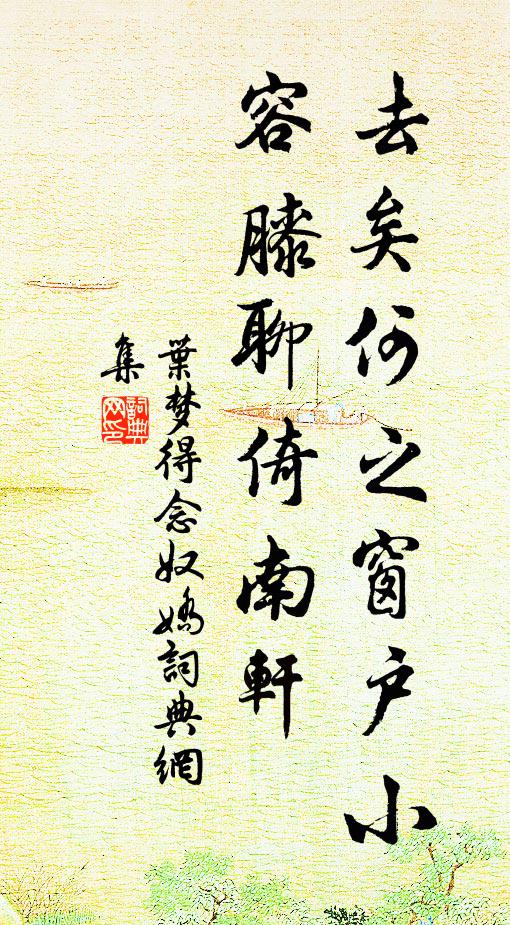 去矣何之窗户小
容膝聊倚南軒
葉梦得念奴嬌詞典網
集
詞典网印